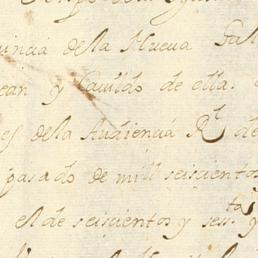 uincia dela Nueva Gal
ean y Cavildo de ella.
es dela Audiencia Rl de
pasado de mill seiscientos
el de seiscientos y ses.ta y